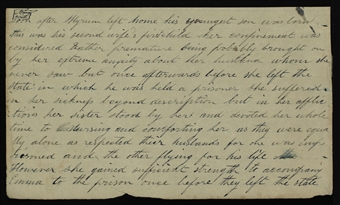 soon after Hyrum left home his youngest son was born
this was his second wife's first child her confinement was
considered Rather premature being probably brought on
by her extreme anxiety about her husband whom she
never saw but once afterwards before she left the
state in which he was held a prisoner she suffered
in her sickness beyond description but in her afflic
tions her sister stood by her and devoted her whole
time to nursing and comforting her as they were equa
lly alone as respected their husbands for she was imp
risoned and the other flying for his life
However she gained sufficient strength to accompany
Emma to the prison once before they left the state